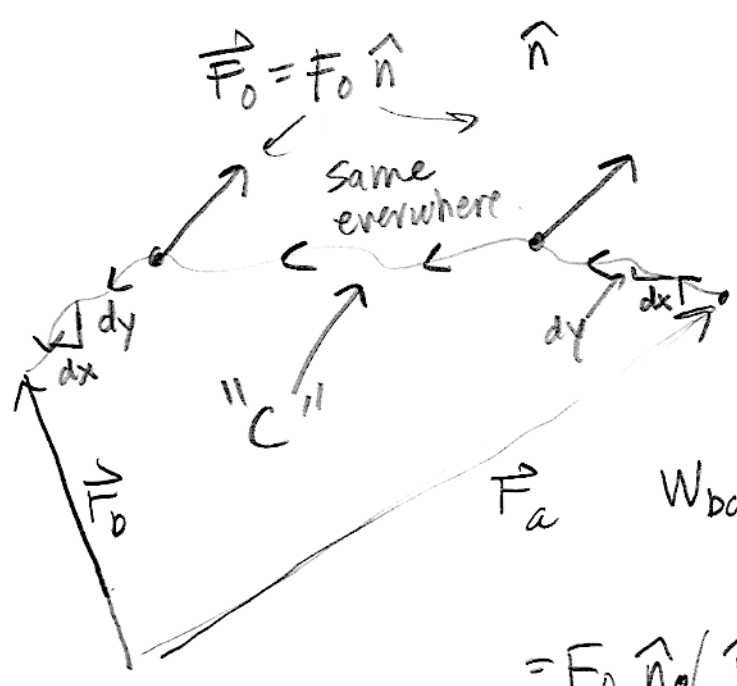 F⃗₀ = F₀ n̂
n̂
same
everwhere
dy
dx
dy
dx
"C"
r⃗_b
r⃗_a
W_ba
= F₀ n̂ ·